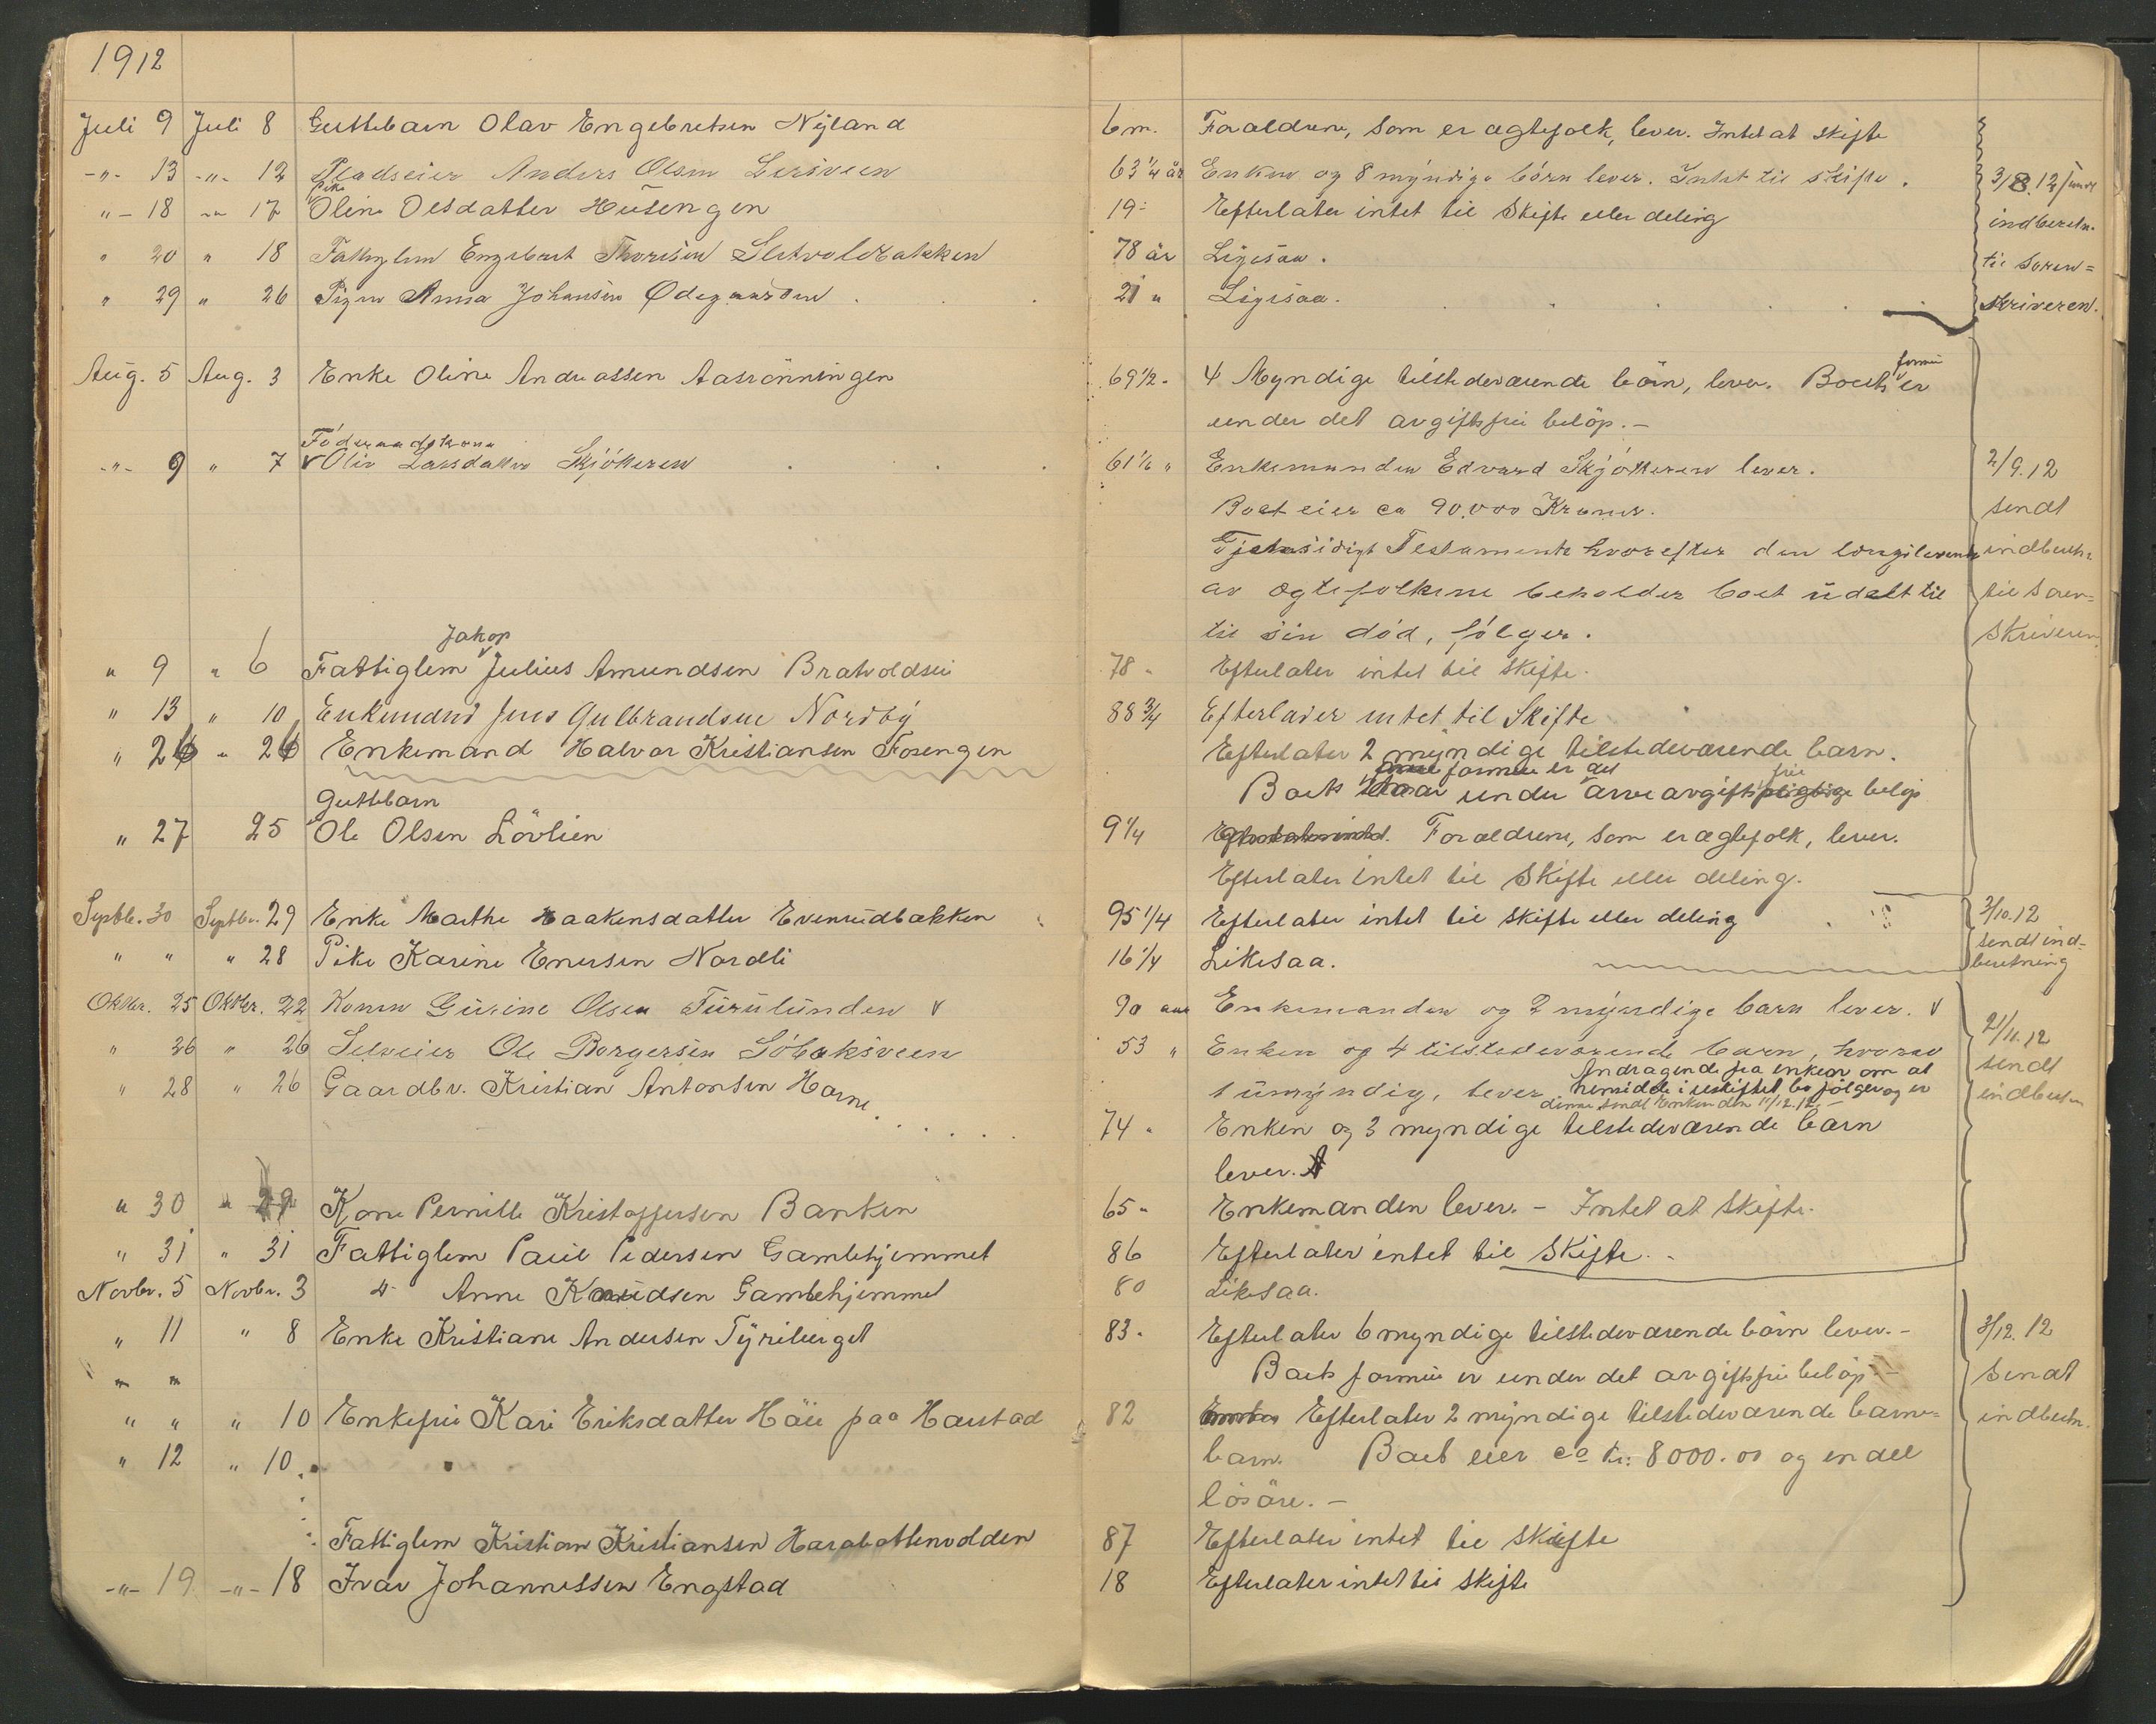 1912
Juli 9 Juli 8 Guttebarn Olav Engebretsen Nyland 6 m. Forældrene, som er ægtefolk, lever. Intet at skifte
-"- 13 -"- 12 Pladseier Anders Olsen Lersveen 63 1/4 år Enken og 8 myndige börn lever. Intet til skifte. 3/8 12 sendt
pike
"- 18 -"- 17 Oline Olsdatter Husengen 19- Efterlater intet til Skifte eller deling indberetn.
" 20 " 18 Fattiglem Engebret Thoresen Sletvoldbakken 78 år Ligesaa. til Soren=
" 29 " 26 Pigen Anna Johansen Ødegaarden 21 " Ligesaa. skriveren.
formue
Aug. 5 Aug. 3 Enke Oline Andreassen Aasrönningen 69 1/2 - 4 Myndige tilstedeværende börn, lever. Boets er
under det avgiftsfrie belöp. -
Föderaadskone
-"- 9 " 7 Oliv Larsdatter Skjötteren 61 1/6 " Enkemanden Edvard Skjötteren lever. 2/9. 12
Boet eier ca 90.000 Kroner. sendt
Gjensidigt Testamente hvorefter den længstlevende indberetn.
av ægtefolkene beholder boet udelt til til Soren=
til sin död, fölger. skriveren
Jakop
" 9 " 6 Fattiglem Julius Amundsen Bratvoldsei 78 " Efterlater intet til skifte.
" 13 " 10 Enkemand Jens Gulbrandsen Nordby 88 3/4 Efterlader intet til Skifte
" 26 " 24 Enkemand Halvor Kristiansen Fosengen Efterlater 2 myndige tilstedeværende barn.
formue er det frie
Boets under arveavgiftspligtige beløp
Guttebarn
" 27 25 Ole Olsen Lövlien 9 1/4 Forældrene, som er ægtefolk, lever.
Efterlater intet til Skifte eller deling.
Septbr. 30 Septbr. 29 Enke Marthe Haakensdatter Evenrudbakken 95 1/4 Efterlater intet til skifte eller deling 3/10. 12
" " " 28 Pike Karine Enersen Nordli 16 1/4 Likesaa. sendt ind-
beretning
Oktbr. 25 Oktbr. 22 Konen Gurine Olsen Furulunden 90 aar Enkemanden og 2 myndige barn lever.
" 26 " 26 Selveier Ole Borgersen Söbaksveen 53 " Enken og 4 tilstedeværende barn, hvorav 21/11. 12
Andragende fra enken om at sendt
" 28 " 26 Gaardbr. Kristian Antonsen Horne 1 umyndig, lever hensidde i uskiftet bo fölger og er indberetn
denne sendt Enken den 11/12. 12. -
74 " Enken og 3 myndige tilstedeværende barn
lever.
" 30 " 29 Kone Pernille Kristoffersen Banken 65 " Enkemanden lever. - Intet at skifte.
" 31 " 31 Fattiglem Paul Pedersen Gamlehjemmet 86 Efterlater intet til Skifte.
Novbr. 5 Novbr. 3 " Anne Knudsen Gamlehjemmet 80 Likesaa.
" 11 " 8 Enke Kristiane Andersen Tyriberget 83 " Efterlater 6 myndige tilstedeværende börn lever. - 3/12. 12
" " Boets formue er under det avgiftsfrie belöp - sendt
" " " 10 Enkefru Kari Eriksdatter Häie paa Harstad 82 Efterlater 2 myndige tilstedeværende barne= indberetn.
" 12 " 10 barn. Boet eier ca kr: 8000.00 og en del
lösöre. -
Fattiglem Kristian Kristiansen Harabattenvolden 87 Efterlater intet til Skifte
-"- 19 -"- 18 Ivar Johannessen Engstad 18 Efterlater intet til Skifte